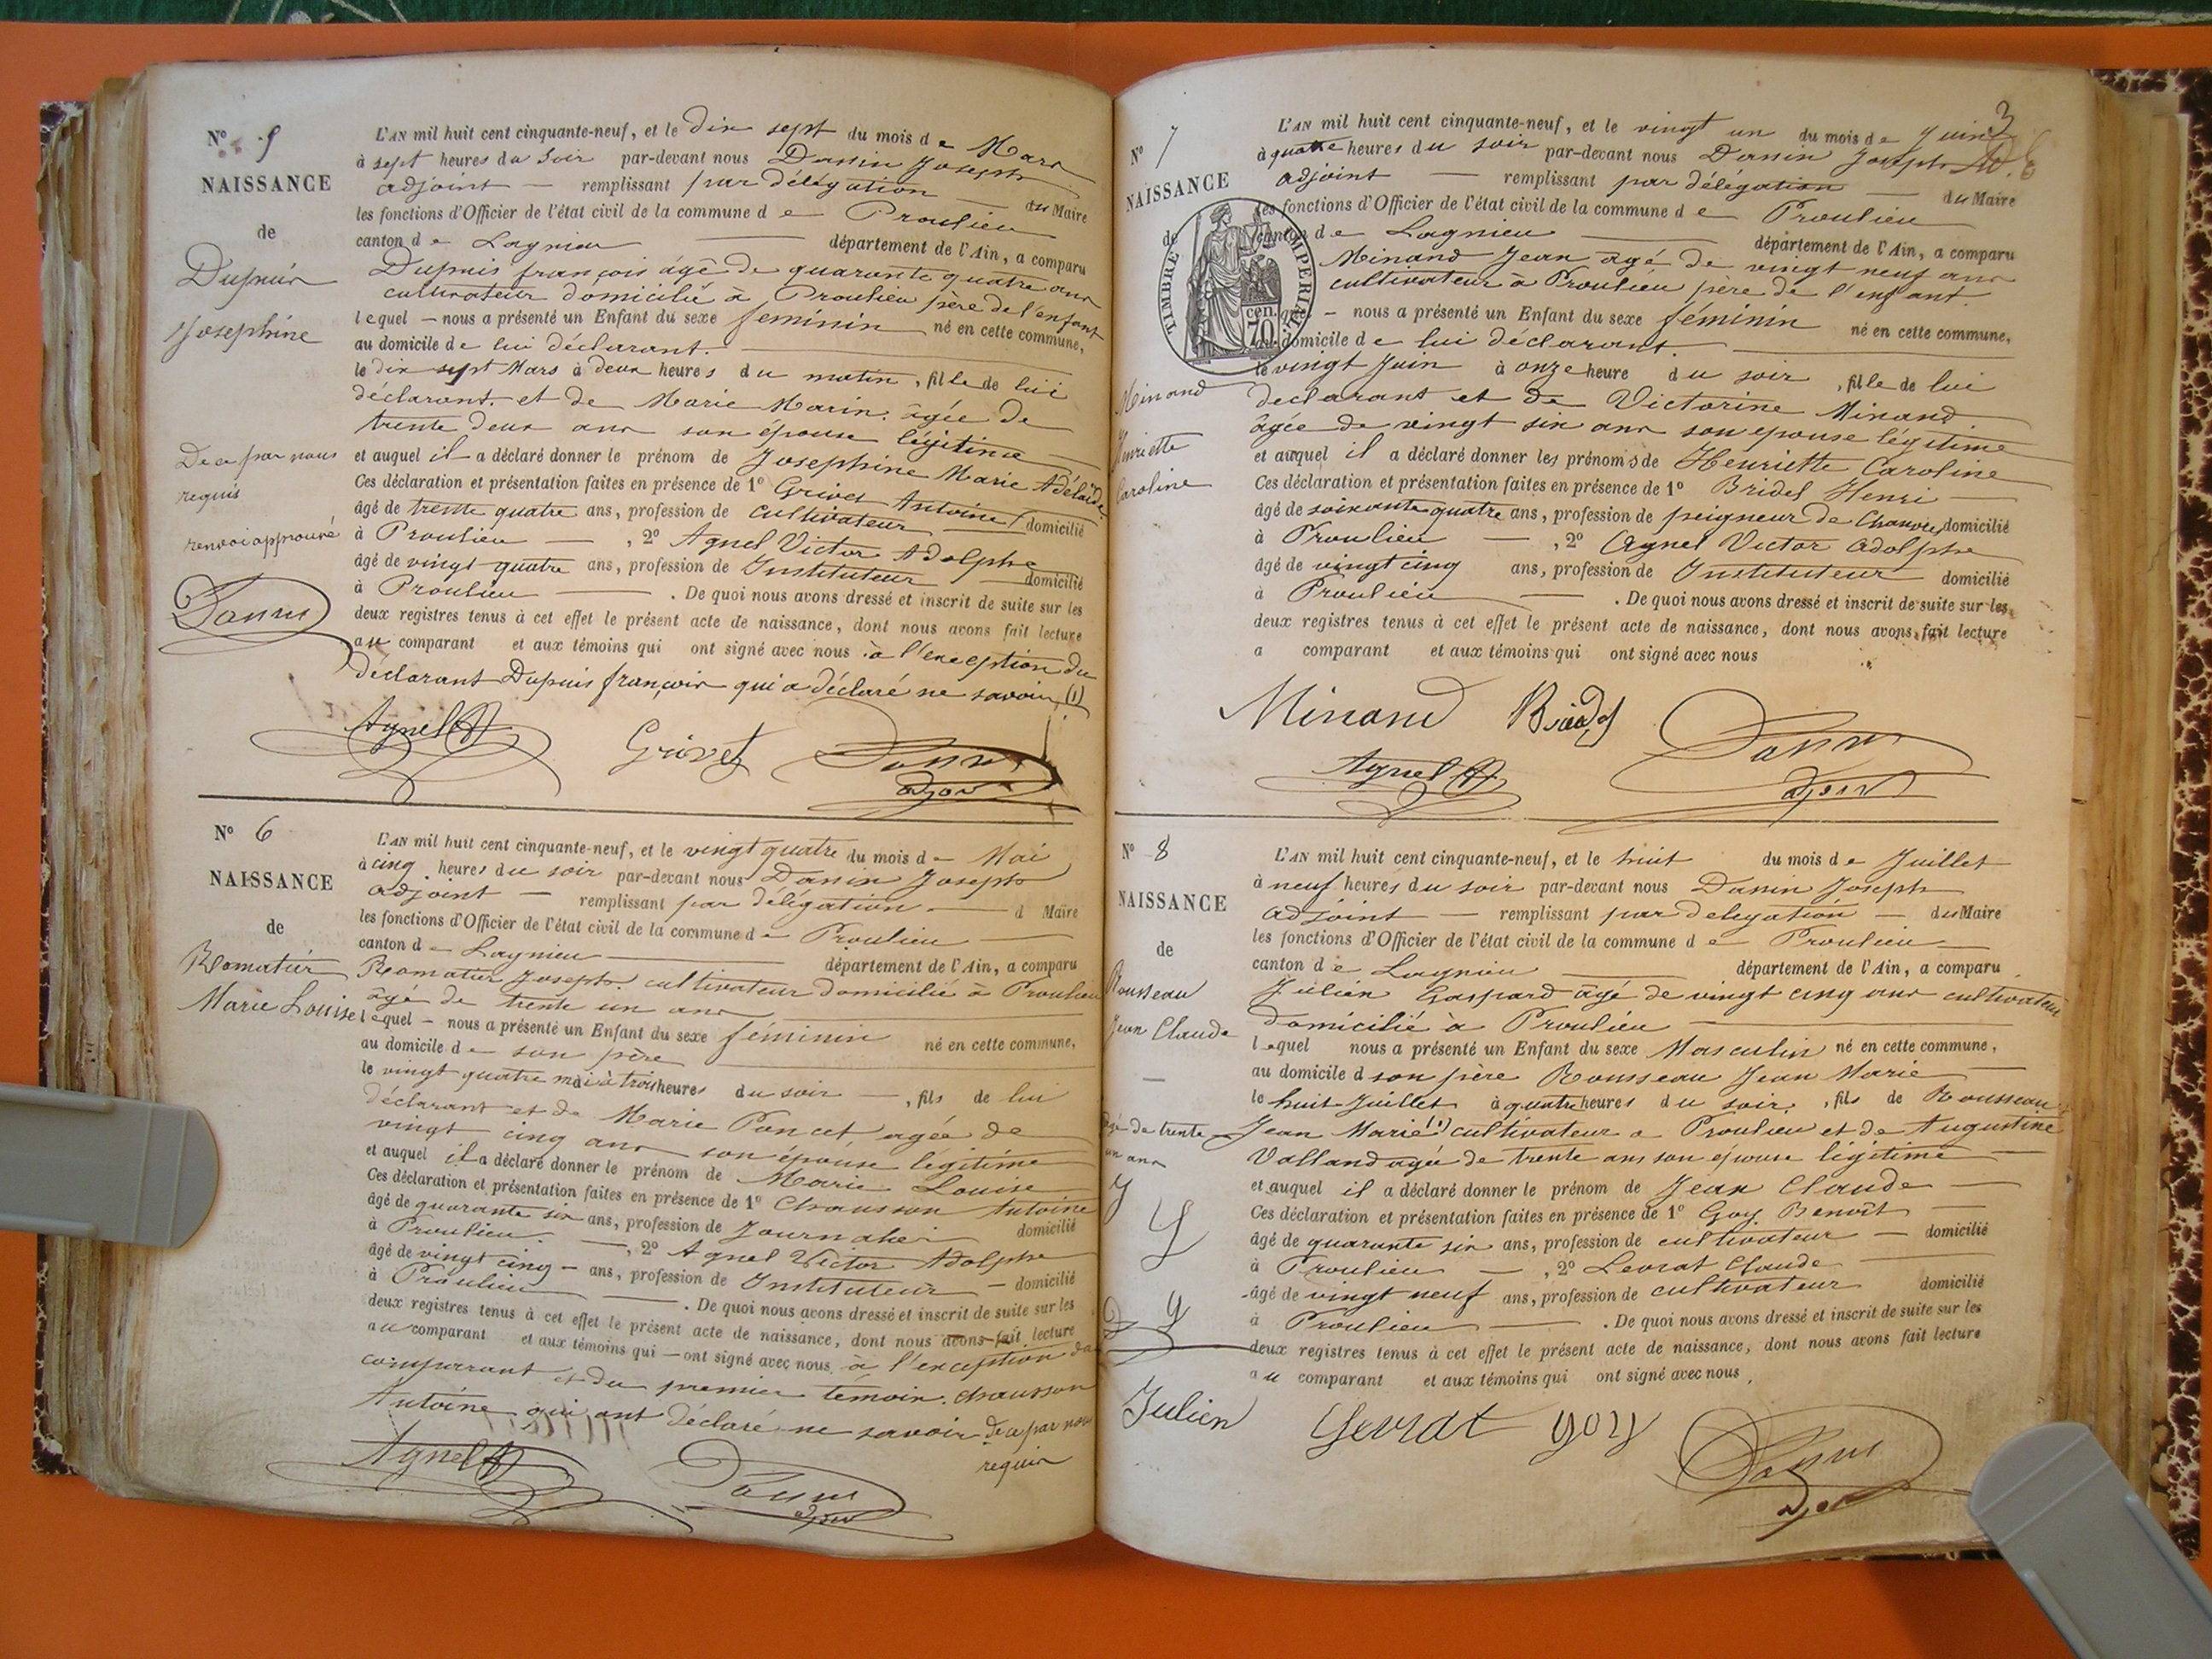 N° 5
NAISSANCE
de
Dupuis
Josephine
De ce par nous
requis
renvoi approuvé
L'AN mil huit cent cinquante-neuf, et le dix sept du mois de Mars
à sept heures du soir par-devant nous Danin Joseph
adjoint — remplissant par délégation — du Maire
les fonctions d'Officier de l'état civil de la commune de Proulieu
canton de Lagnieu — département de l'Ain, a comparu
Dupuis françois âgé de quarante quatre ans
cultivateur domicilié à Proulieu père de l'enfant
lequel — nous a présenté un Enfant du sexe féminin né en cette commune,
au domicile de lui déclarant.
le dix sept Mars à deux heures du matin, fille de lui
déclarant. et de Marie Marin. âgée de
trente deux ans son épouse légitime
et auquel il a déclaré donner le prénom de Josephine Marie Adélaïde
Ces déclaration et présentation faites en présence de 1° Grivet Antoine
âgé de trente quatre ans, profession de cultivateur domicilié
à Proulieu — , 2° Agnel Victor Adolphe
âgé de vingt quatre ans, profession de Instituteur domicilié
à Proulieu — . De quoi nous avons dressé et inscrit de suite sur les
deux registres tenus à cet effet le présent acte de naissance, dont nous avons fait lecture
au comparant et aux témoins qui ont signé avec nous à l'exception du
déclarant Dupuis françois qui a déclaré ne savoir (1)
Agnel Grivet
N° 6
NAISSANCE
de
Romatier
Marie Louise
L'AN mil huit cent cinquante-neuf, et le vingt quatre du mois de Mai
à cinq heures du soir par-devant nous Danin Joseph
adjoint — remplissant par délégation — d Maire
les fonctions d'Officier de l'état civil de la commune de Proulieu —
canton de Lagnieu — département de l'Ain, a comparu
Romatier Joseph. cultivateur domicilié à Proulieu
âgé de trente un ans
lequel — nous a présenté un Enfant du sexe féminin né en cette commune,
au domicile de son père
le vingt quatre mai à trois heures du soir —, fils de lui
déclarant et de Marie Poncet, agée de
vingt cinq ans son épouse légitime
et auquel il a déclaré donner le prénom de Marie Louise
Ces déclaration et présentation faites en présence de 1° Chausson Antoine
âgé de quarante six ans, profession de Journalier domicilié
à Proulieu. —, 2° Agnel Victor Adolphe
âgé de vingt cinq — ans, profession de Instituteur — domicilié
à Proulieu — . De quoi nous avons dressé et inscrit de suite sur les
deux registres tenus à cet effet le présent acte de naissance, dont nous avons fait lecture
au comparant et aux témoins qui — ont signé avec nous à l'exception du
comparant et du premier témoin. chausson
Antoine qui ont déclaré ne savoir de ce par nous
requis
Agnel
3
N° 7
NAISSANCE
de
TIMBRE IMPERIAL
70 cen.
Minand
Henriette
Caroline
L'AN mil huit cent cinquante-neuf, et le vingt un du mois de Juin
à quatre heures du soir par-devant nous Danin Joseph
adjoint — remplissant par délégation du Maire
les fonctions d'Officier de l'état civil de la commune de Proulieu
canton de Lagnieu — département de l'Ain, a comparu
Minand Jean âgé de vingt neuf ans
cultivateur à Proulieu père de l'enfant.
lequel — nous a présenté un Enfant du sexe féminin né en cette commune,
au domicile de lui déclarant.
le vingt Juin à onze heure du soir, fille de lui
declarant et de Victorine Minand
âgée de vingt six ans son epouse légitime
et auquel il a déclaré donner les prénoms de Henriette Caroline
Ces déclaration et présentation faites en présence de 1° Bridel Henri —
âgé de soixante quatre ans, profession de peigneur de chanvre, domicilié
à Proulieu — , 2° Agnel Victor Adolphe
âgé de vingt cinq ans, profession de Instituteur domicilié
à Proulieu — . De quoi nous avons dressé et inscrit de suite sur les
deux registres tenus à cet effet le présent acte de naissance, dont nous avons fait lecture
a comparant et aux témoins qui ont signé avec nous
Minand
Agnel
N° 8
NAISSANCE
de
Rousseau
Jean Claude
—
âgé de trente
un ans
L'AN mil huit cent cinquante-neuf, et le huit du mois de Juillet
à neuf heures du soir par-devant nous Danin Joseph
adjoint — remplissant par delegation — du Maire
les fonctions d'Officier de l'état civil de la commune de Proulieu
canton de Lagnieu — département de l'Ain, a comparu
Julien Gaspard âgé de vingt cinq ans cultivateur
domicilié à Proulieu —
lequel nous a présenté un Enfant du sexe Masculin né en cette commune,
au domicile d son père Rousseau Jean Marie —
le huit Juillet à quatre heures du soir, fils de Rousseau
Jean Marie (1) cultivateur a Proulieu et de Augustine
Valland agée de trente ans son epouse légitime —
et auquel il a déclaré donner le prénom de Jean Claude —
Ces déclaration et présentation faites en présence de 1° Goy Benoît —
âgé de quarante six ans, profession de cultivateur — domicilié
à Proulieu — , 2° Levrat Claude
âgé de vingt neuf ans, profession de cultivateur domicilié
à Proulieu — . De quoi nous avons dressé et inscrit de suite sur les
deux registres tenus à cet effet le présent acte de naissance, dont nous avons fait lecture
au comparant et aux témoins qui ont signé avec nous
Julien Levrat goy